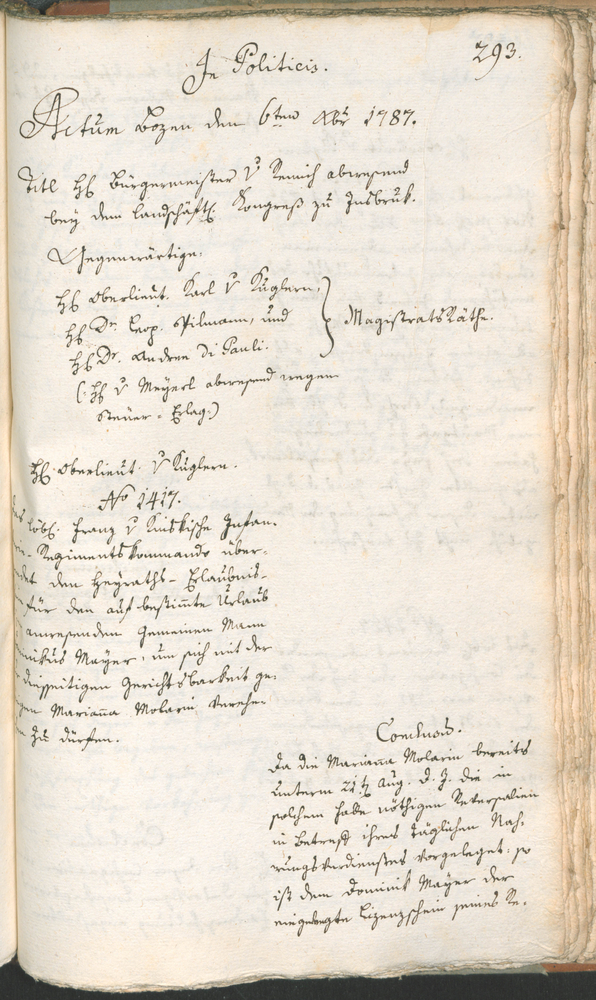 293.
In Politicis.
Actum Bozen den 6ten Xbr 1787.
Titl H: Bürgermeister v Remich abwesend
bey dem landschäftl. Kongreß zu Insbruk.
Gegenwärtige.
H: Oberlieut. Karl v Kuglern,
H: Dr. Leop. Pilmann, und
H: Dr. Andree Di Pauli.
} MagistratsRäthe.
(: H: v Meyerl abwesend wegen
Steuer-Erlag:)
H: Oberlieut. v Kuglern.
No 1417.
löbl. Franz v Kinskische Infan-
Regimentskommando über-
den Heyraths-Erlaubnis-
für den auf bestimte Urlaub
anwesenden Gemeinen Mann
Mayer, um sich mit der
diesseitigen Gerichtsbarkeit ge-
Marianna Molarin verehe-
zu dürfen.
Conclusum.
Da die Marianna Molarin bereits
unterm 21t Aug. d. J. die in
solchem Falle nöthigen Reversalien
in Betreff ihres täglichen Nah-
rungsverdienstes vorgeleget: so
ist dem Dominik Mayer der
eingelegte Lizenzschein seines Re-